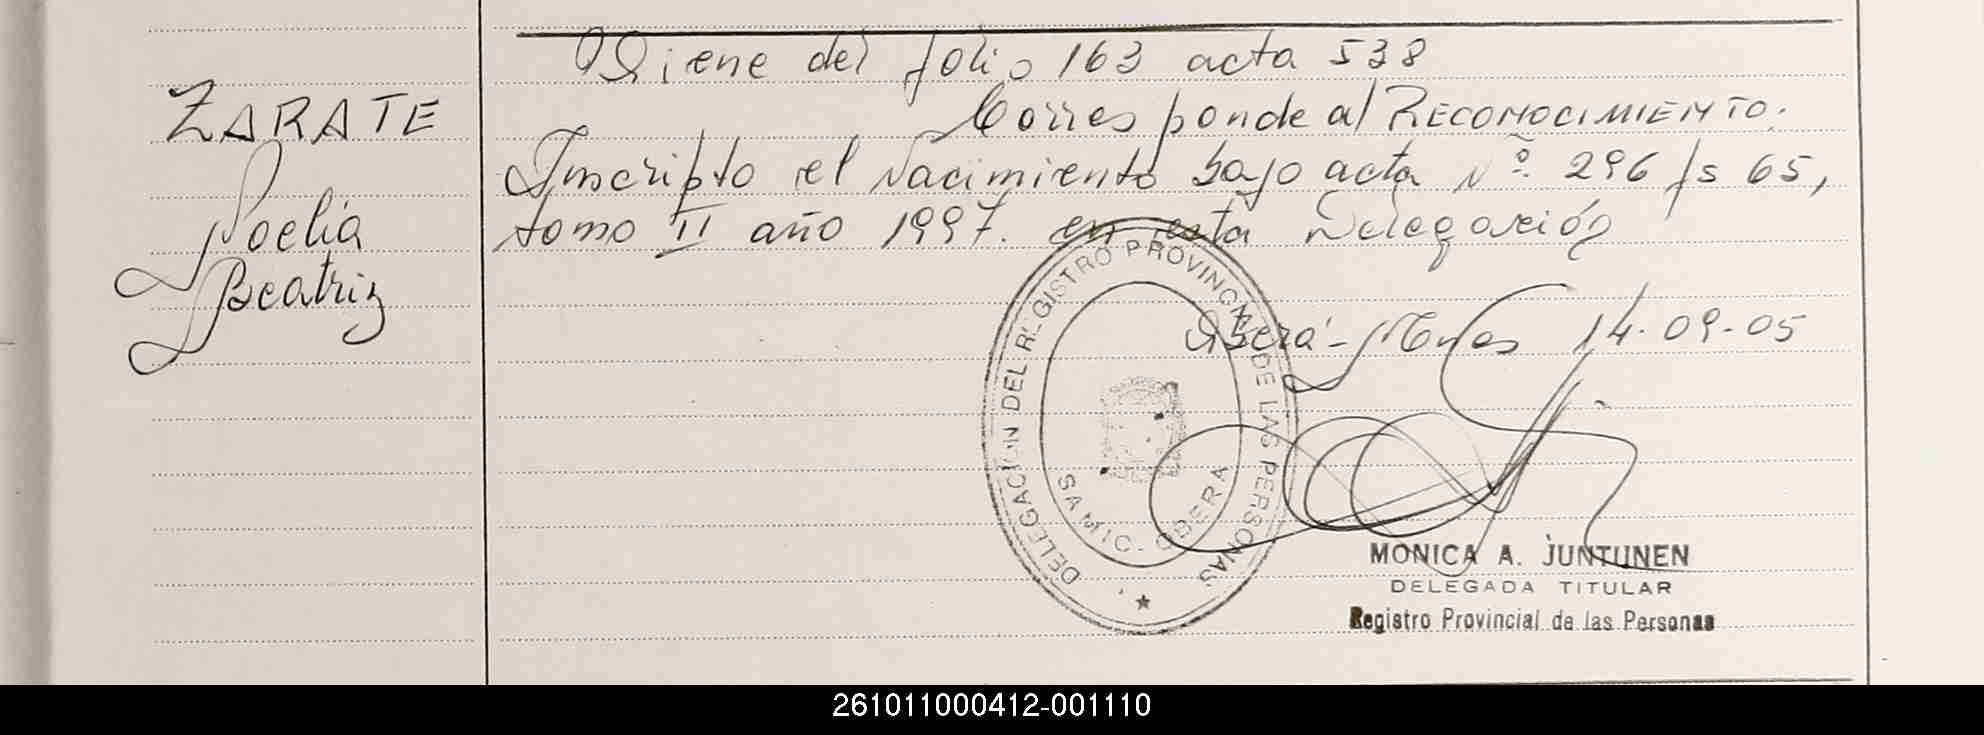 Viene del folio 163 acta 538
ZARATE
Corresponde al RECONOCIMIENTO.
Inscripto el Nacimiento bajo acta Nº 296 fs 65,
Noelia
tomo II año 1997. en esta Delegación
Beatriz
Oberá - Mnes 14-09-05
DELEGACION DEL REGISTRO PROVINCIAL DE LAS PERSONAS
SAMIC - OBERA
MONICA A. JUNTUNEN
DELEGADA TITULAR
Registro Provincial de las Personas
261011000412-001110